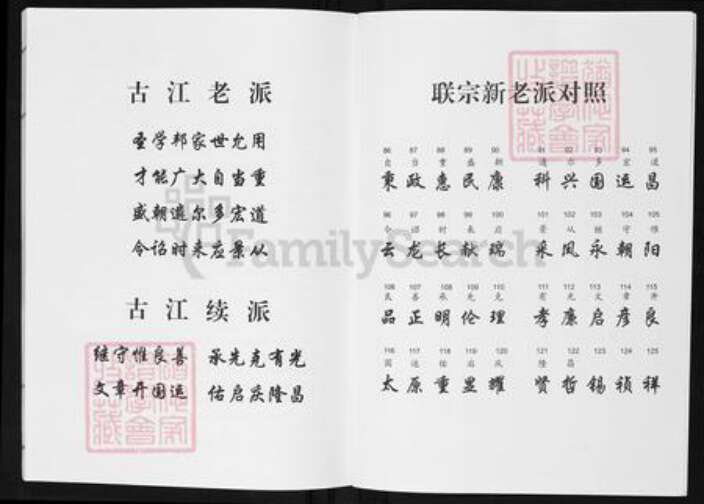 古江老派
圣学邦家世允用
才能广大自当重
盛朝遴尔多宏道
令诒时来应景从
古江续派
继守惟良善 承先克有光
文章开国运 佑启庆隆昌
联宗新老派对照
86 87 88 89 90 91 92 93 94 95
自 当 重 盛 朝 遴 尔 多 宏 道
秉 政 惠 民 康 科 兴 国 运 昌
96 97 98 99 100 101 102 103 104 105
令 诒 时 来 应 景 从 继 守 惟
云 龙 长 献 瑞 采 凤 永 朝 阳
106 107 108 109 110 111 112 113 114 115
良 善 承 先 克 有 光 文 章 开
品 正 明 伦 理 孝 廉 启 彦 良
116 117 118 119 120 121 122 123 124 125
国 运 佑 启 庆 隆 昌
太 原 重 显 耀 贤 哲 锡 祯 祥
FamilySearch